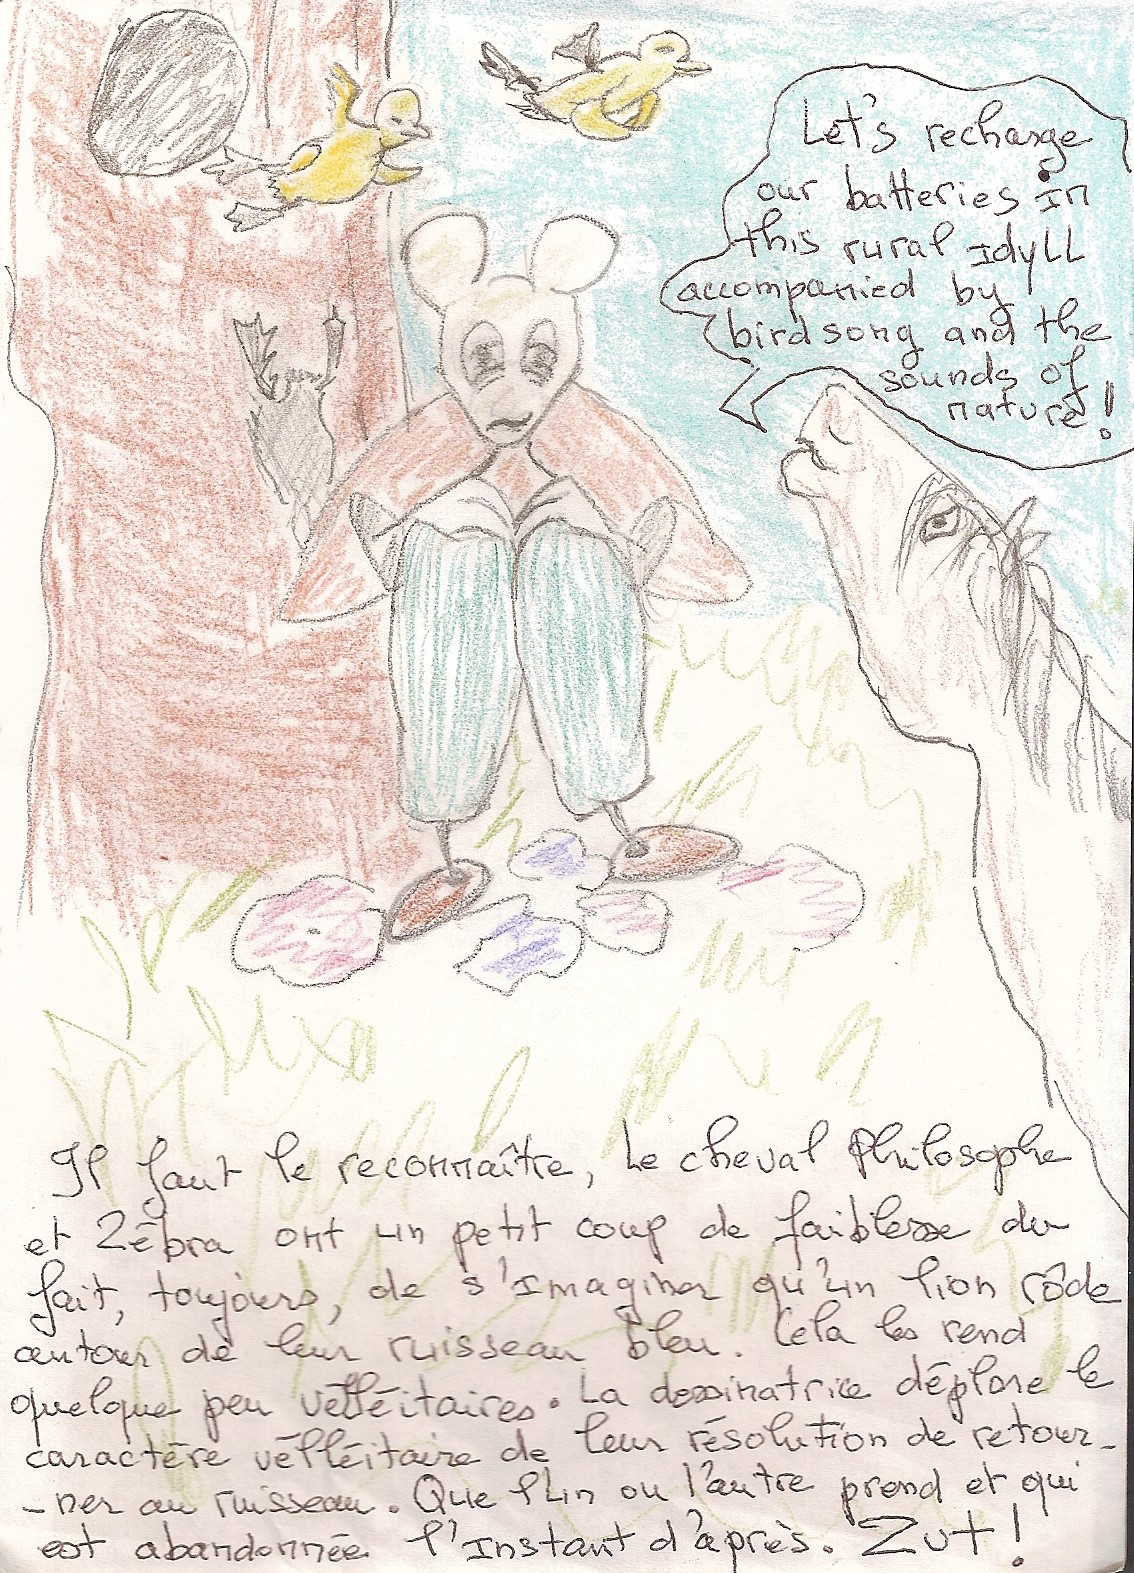 Let's recharge
our batteries in
this rural idyll
accompanied by
birdsong and the
sounds of
nature!
Il faut le reconnaître, Le cheval Philosophe
et Zêbra ont un petit coup de faiblesse du
fait, toujours, de s'imaginer qu'un lion rôde
autour de leur ruisseau bleu. Cela les rend
quelque peu velléitaires. La dessinatrice déplore le
caractère velléitaire de leur résolution de retour-
-ner au ruisseau. Que l'un ou l'autre prend et qui
est abandonnée l'instant d'après. Zut!